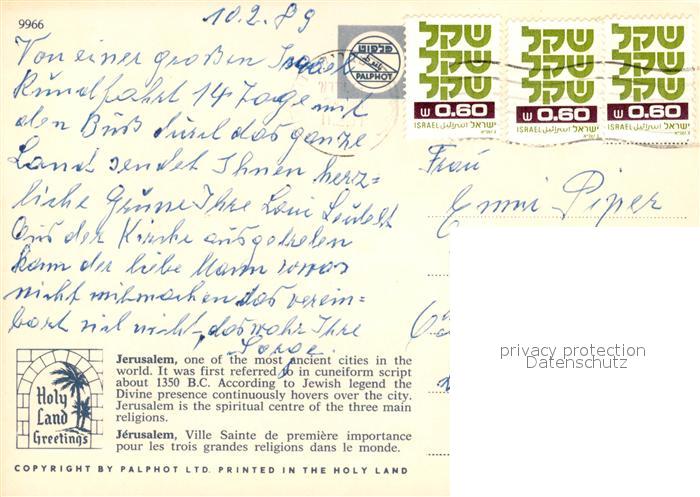 9966
10.2.89
Von einer großen Israel
Rundfahrt 14 Tage mit
den Buß durch das ganze
Land sendet Ihnen herz=
liche Grüße Ihre Loni
Aus der Kirche ausgetreten
kann der liebe Mann sowas
nicht mitmachen das verein=
bart sich nicht, das wahr Ihre
Sorge
פלפוט
PALPHOT
שקל
שקל
שקל
ש 0.60
ISRAEL اسرائيل ישראל
שקל
שקל
שקל
ש 0.60
ISRAEL اسرائيل ישראל
שקל
שקל
שקל
ש 0.60
ISRAEL اسرائيل ישראל
Frau
Emmi Piper
privacy protection
Datenschutz
Holy
Land
Greetings
Jerusalem, one of the most ancient cities in the
world. It was first referred to in cuneiform script
about 1350 B.C. According to Jewish legend the
Divine presence continuously hovers over the city.
Jerusalem is the spiritual centre of the three main
religions.
Jérusalem, Ville Sainte de première importance
pour les trois grandes religions dans le monde.
COPYRIGHT BY PALPHOT LTD. PRINTED IN THE HOLY LAND